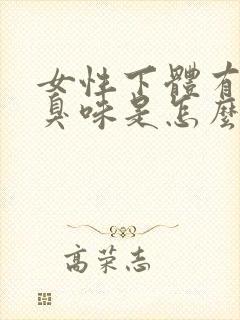 女性下體有
臭味是怎麼
高荣志